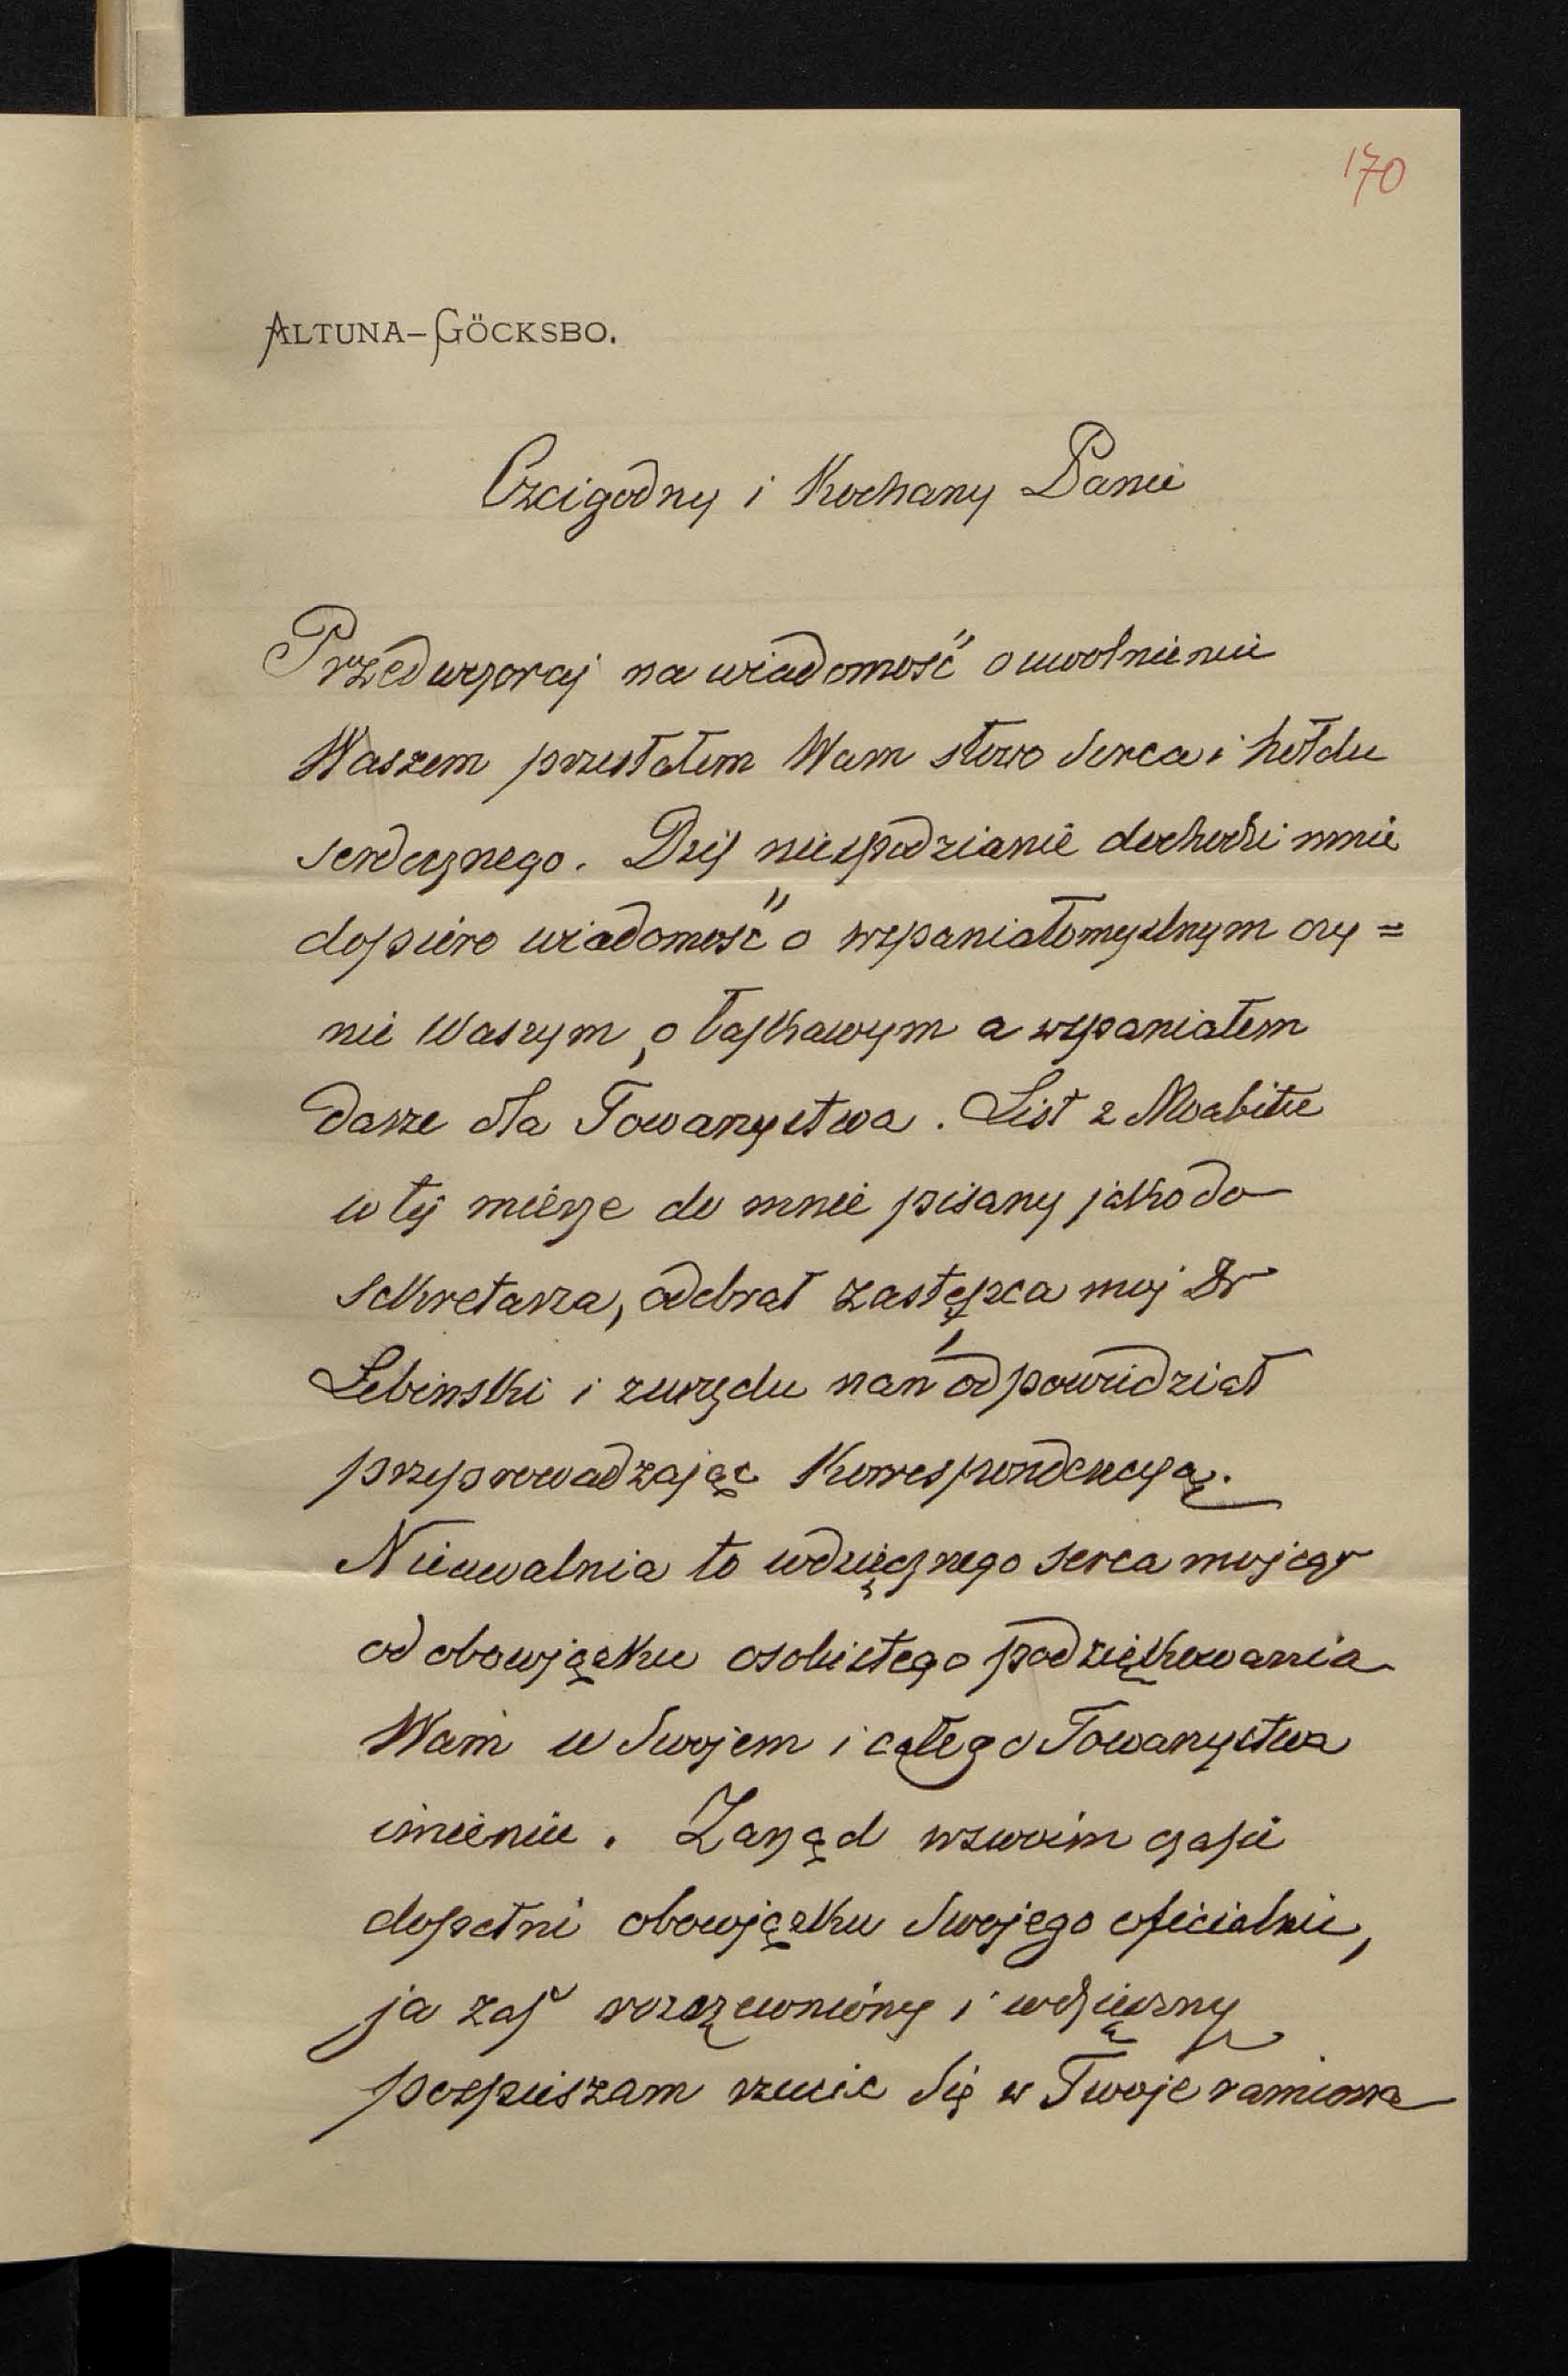 170
ALTUNA–GÖCKSBO.
Czcigodny i Kochany Panie
Przedwczoraj na wiadomość o uwolnieniu
Waszem przesłałem Wam słowo serca i hołdu
serdecznego. Dziś niespodzianie dochodzi mnie
dopiero wiadomość o wspaniałomyslnym czy=
nie Waszym, o łaskawym a wspaniałem
darze dla Towarzystwa. List z Moabitu
w tej mierze do mnie pisany jako do
sekretarza, odebrał zastępca moj Dr
Lebinski i zurzędu nań odpowiedział
przyprowadzając Korrespondencyą.
Nieuwalnia to wdzięcznego serca mojego
od obowjązku osobistego podziękowania
Wam w Swojem i całego Towarzystwa
imieniu. Zarząd wswoim czasie
dopełni obowjązku Swojego oficialnie,
ja zaś rozrzewniony i wdzięczny
pospieszam rzucic Się w Twoje ramiona